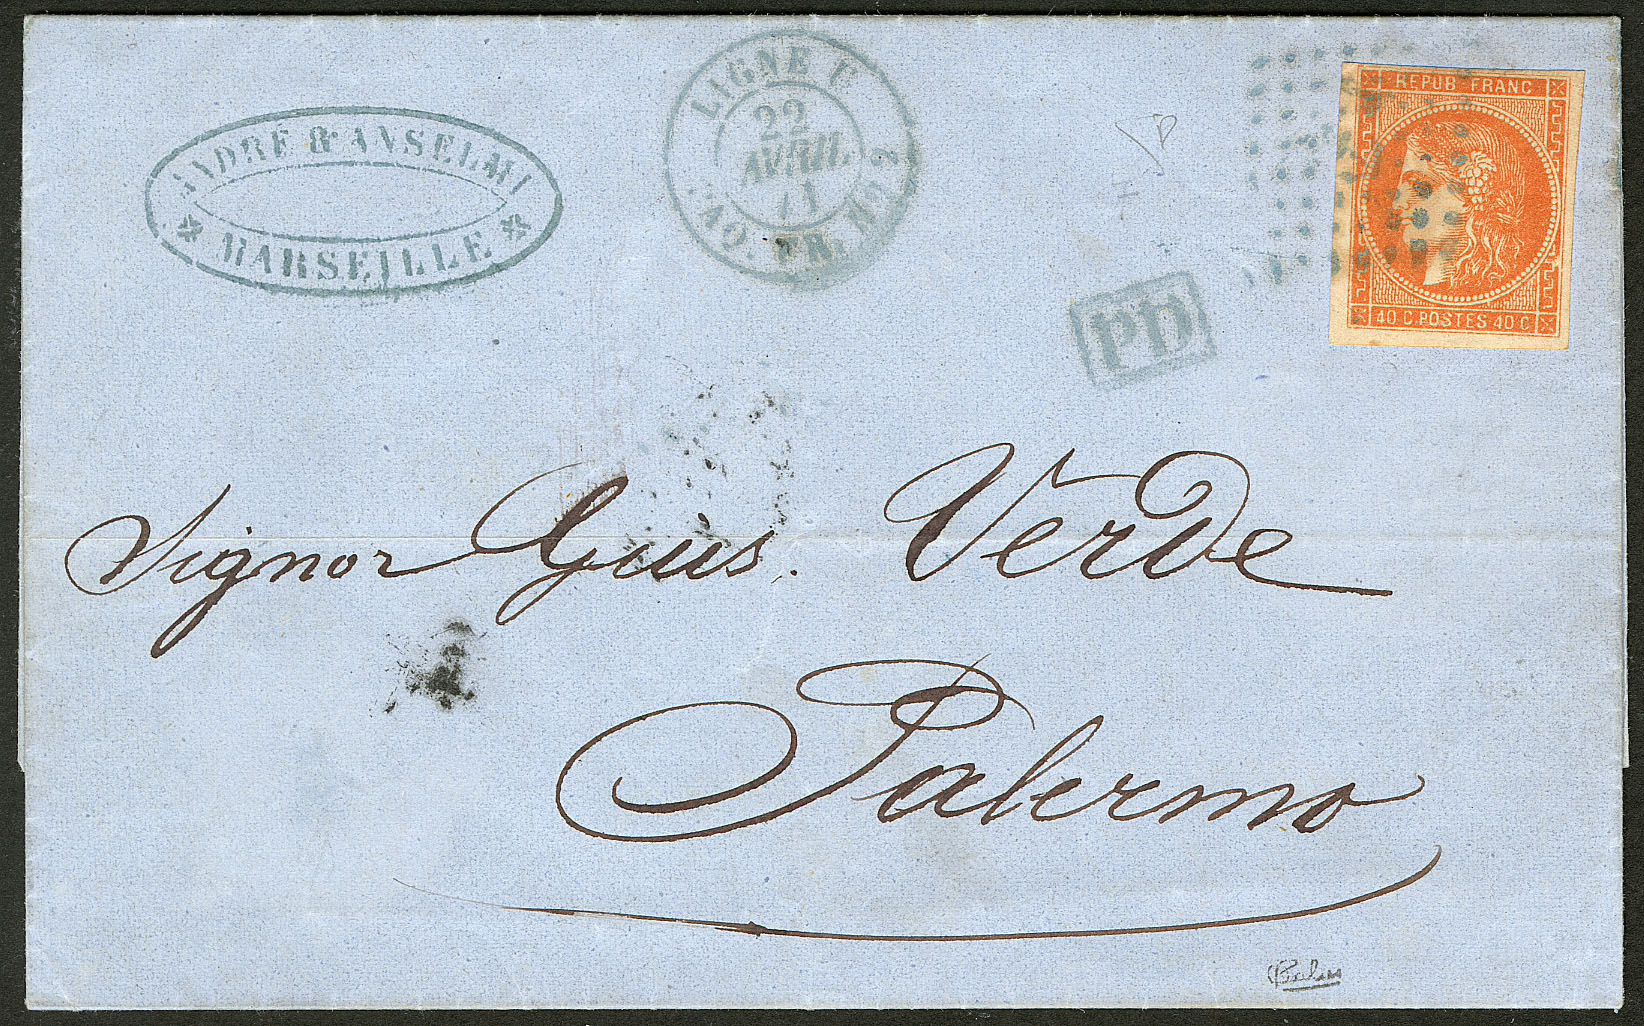 ANDRÉ & ANSELMI
MARSEILLE
LIGNE U
22
AVRIL
71
PAQ. FR. N° 2
REPUB FRANC
40 C. POSTES 40 C
PD
Signor Gius. Verde
Palermo